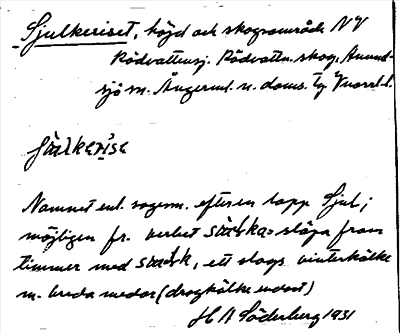 Sjulkeriset, höjd och skogsområde NV
Rödvattensj. Rödvattn. skog, Anund-
sjö sn. Ångerml. n. doms. lg Vnorrl. l.
Namnet enl. sägen. efter en lapp Sjul;
möjligen fr. verbet släpa fram
timmer med , ett slags vinterkälke
m. breda medar (dragkälke endast)
H A Söderberg 1931